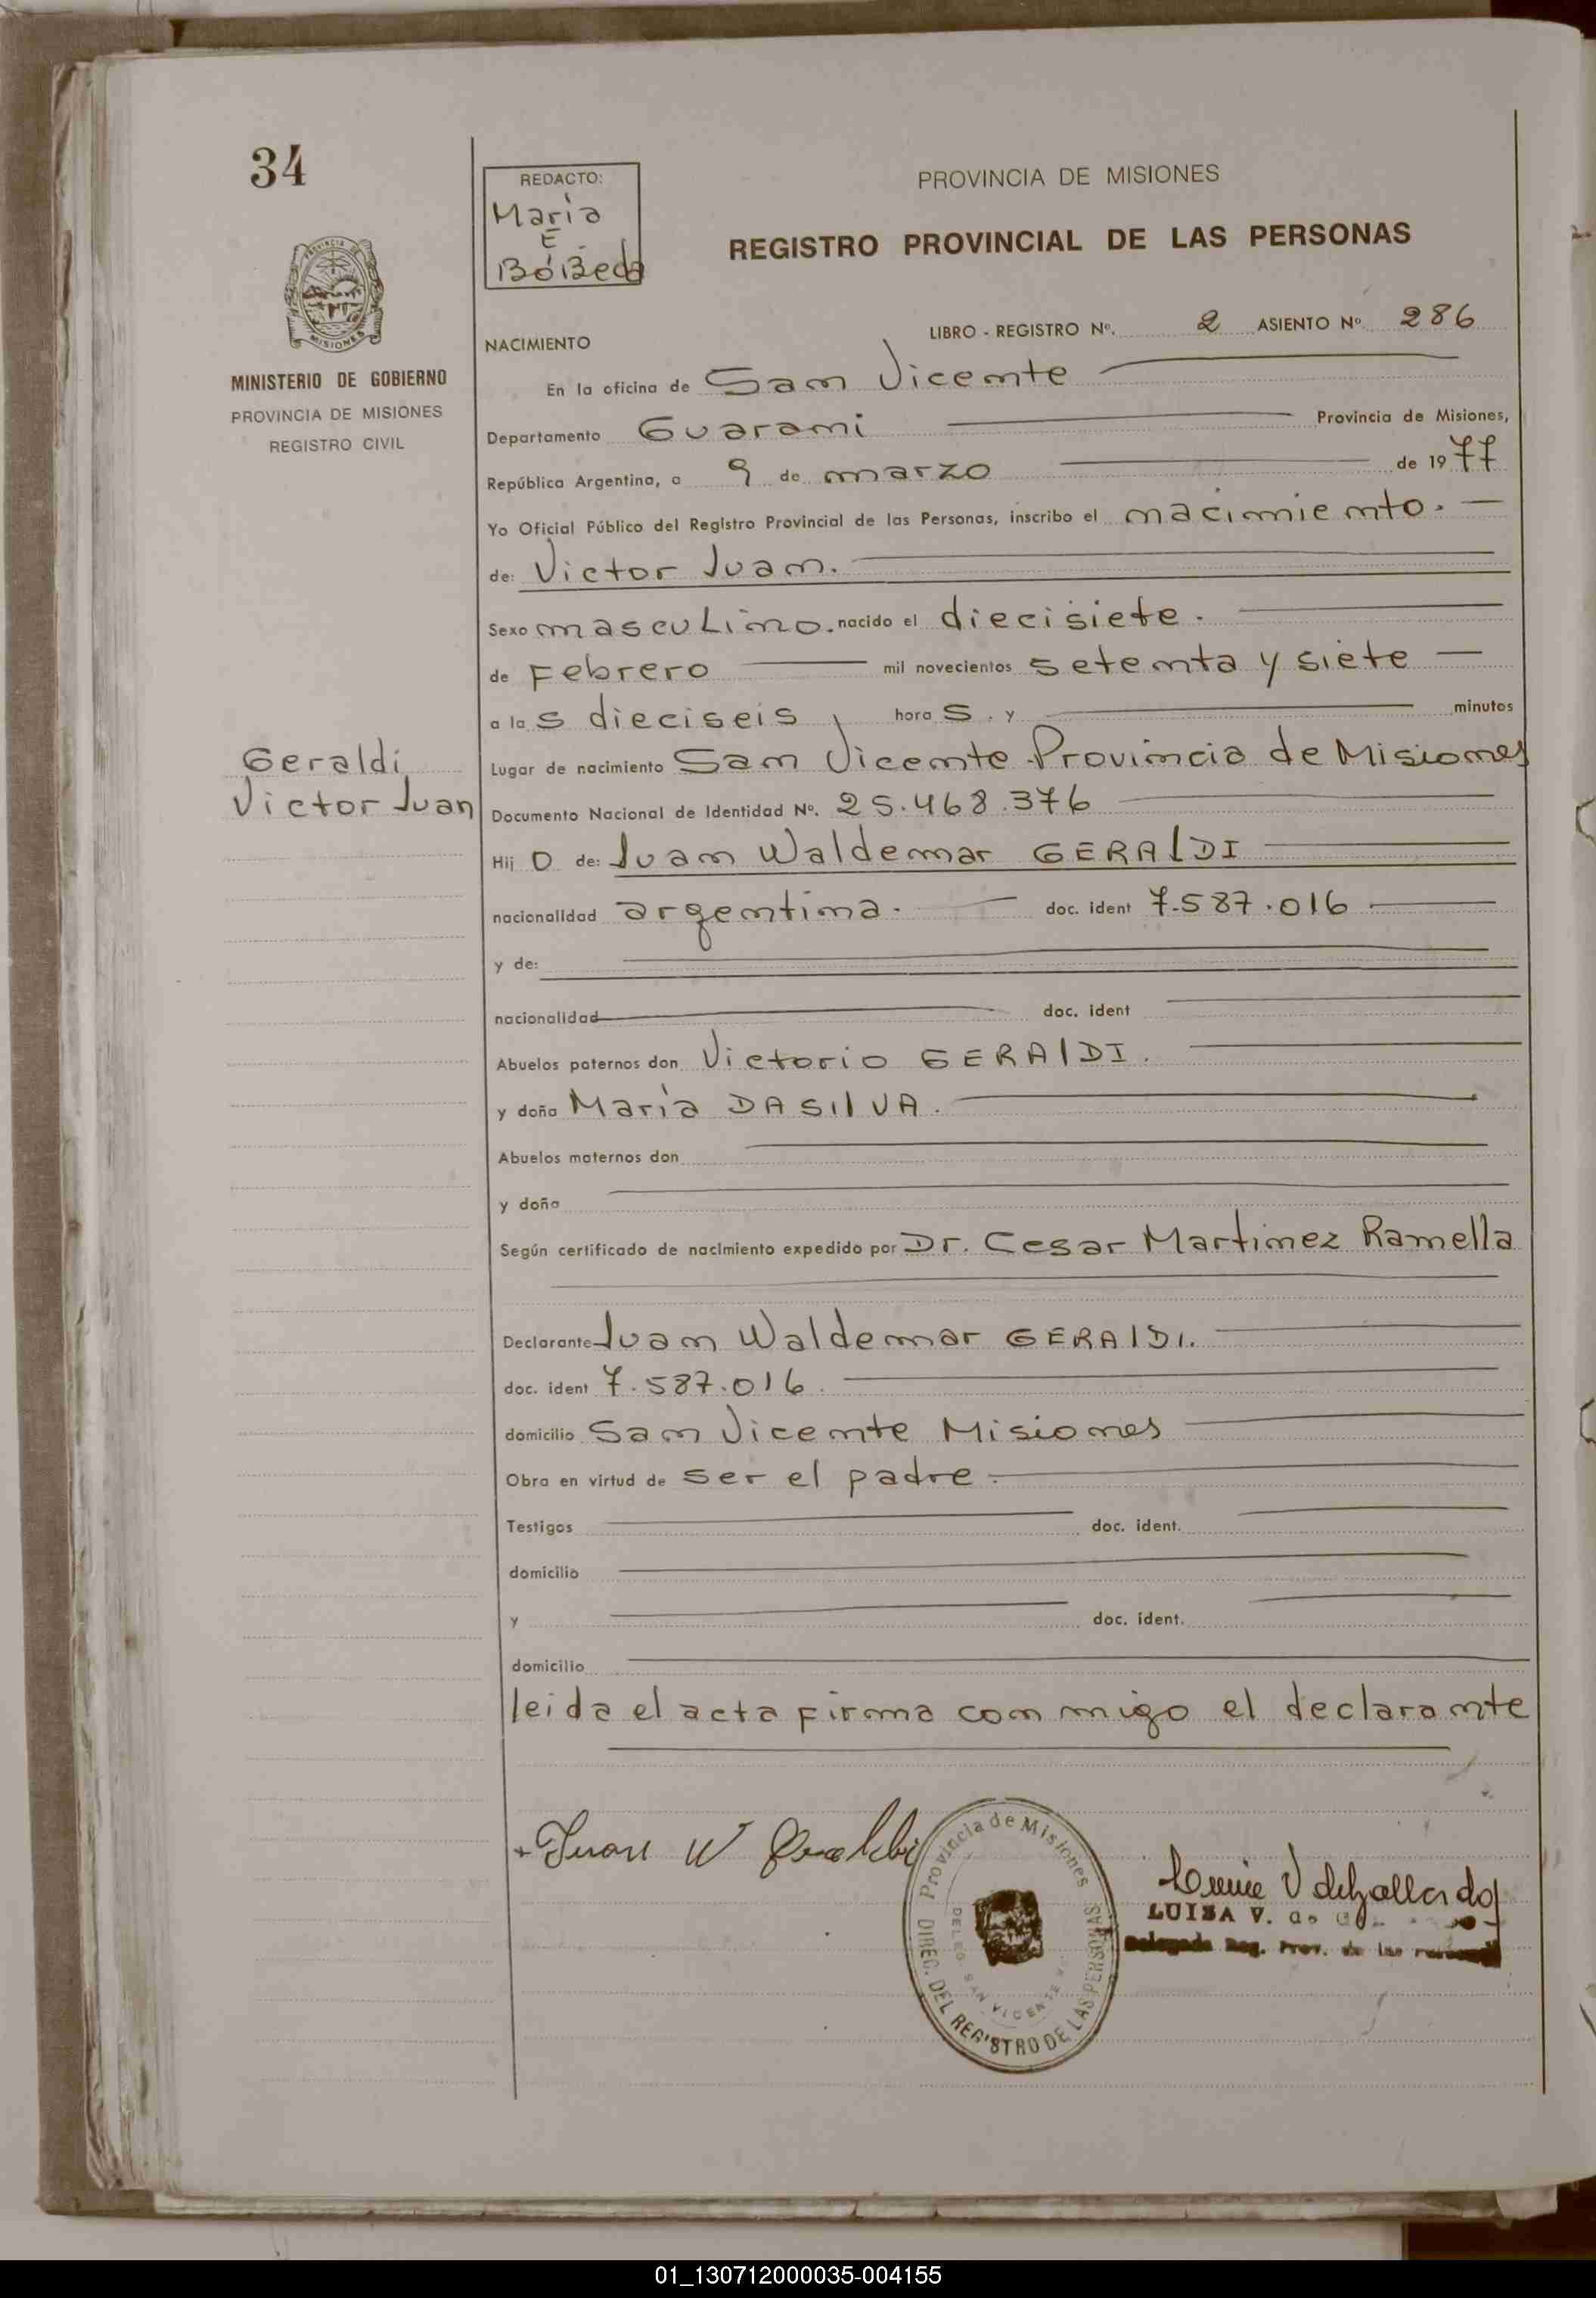 34
REDACTO:
Maria
E.
BóBeda
PROVINCIA DE MISIONES
REGISTRO PROVINCIAL DE LAS PERSONAS
PROVINCIA DE
MISIONES
MINISTERIO DE GOBIERNO
PROVINCIA DE MISIONES
REGISTRO CIVIL
LIBRO - REGISTRO Nº. 2 ASIENTO Nº 286
NACIMIENTO
En la oficina de San Vicente
Departamento Guarani Provincia de Misiones,
República Argentina, a 9 de marzo de 1977
Yo Oficial Público del Registro Provincial de las Personas, inscribo el nacimiento.
de: Victor Juan.
Sexo masculino. nacido el diecisiete.
de Febrero mil novecientos setenta y siete
a las dieciseis horas. y minutos
Geraldi
Victor Juan
Lugar de nacimiento San Vicente Provincia de Misiones
Documento Nacional de Identidad Nº. 25.468.376
Hijo de: Juan Waldemar GERALDI
nacionalidad argentina. doc. ident 7.587.016
y de:
nacionalidad doc. ident
Abuelos paternos don Victorio GERALDI.
y doña María DASILVA.
Abuelos maternos don
y doña
Según certificado de nacimiento expedido por Dr. Cesar Martinez Ramella
Declarante Juan Waldemar GERALDI.
doc. ident 7.587.016.
domicilio San Vicente Misiones
Obra en virtud de ser el padre.
Testigos doc. ident.
domicilio
y doc. ident.
domicilio
leida el acta firma conmigo el declarante
Juan W Geraldi
Provincia de Misiones
DIREC. DEL REGISTRO DE LAS PERSONAS
DELEG. SAN VICENTE
LUISA V. de
Delegada Reg. Prov. de las
01_130712000035-004155